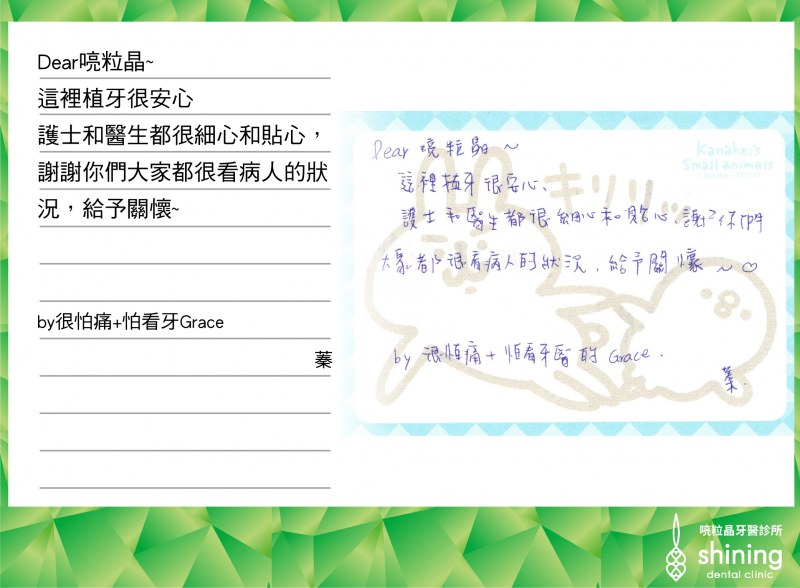 Dear喨粒晶~
這裡植牙很安心
護士和醫生都很細心和貼心，
謝謝你們大家都很看病人的狀
況，給予關懷~
by很怕痛+怕看牙Grace
蓁
Kanahei's
Small animals
キリリッ
Dear 喨粒晶 ～
這裡植牙很安心、
護士和醫生都很細心和貼心、謝2你們
大家都很看病人的狀況、給予關懷 ～ ♡
by 很怕痛 + 怕看牙醫的 Grace.
蓁.
喨粒晶牙醫診所
shining
dental clinic